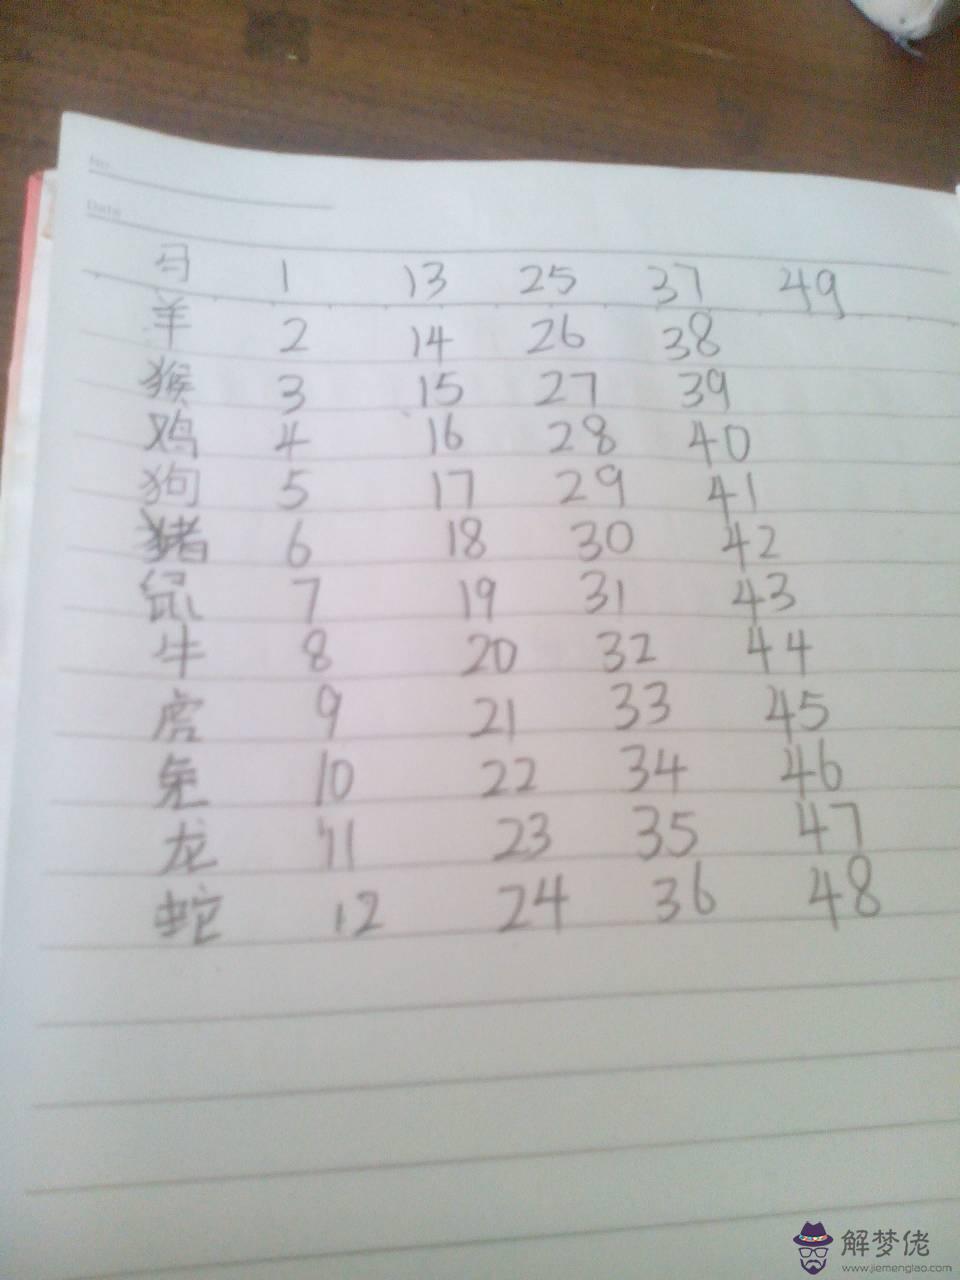 No.
Date
马 1 13 25 37 49
羊 2 14 26 38
猴 3 15 27 39
鸡 4 16 28 40
狗 5 17 29 41
猪 6 18 30 42
鼠 7 19 31 43
牛 8 20 32 44
虎 9 21 33 45
兔 10 22 34 46
龙 11 23 35 47
蛇 12 24 36 48
解梦佬
www.jiemenglao.com